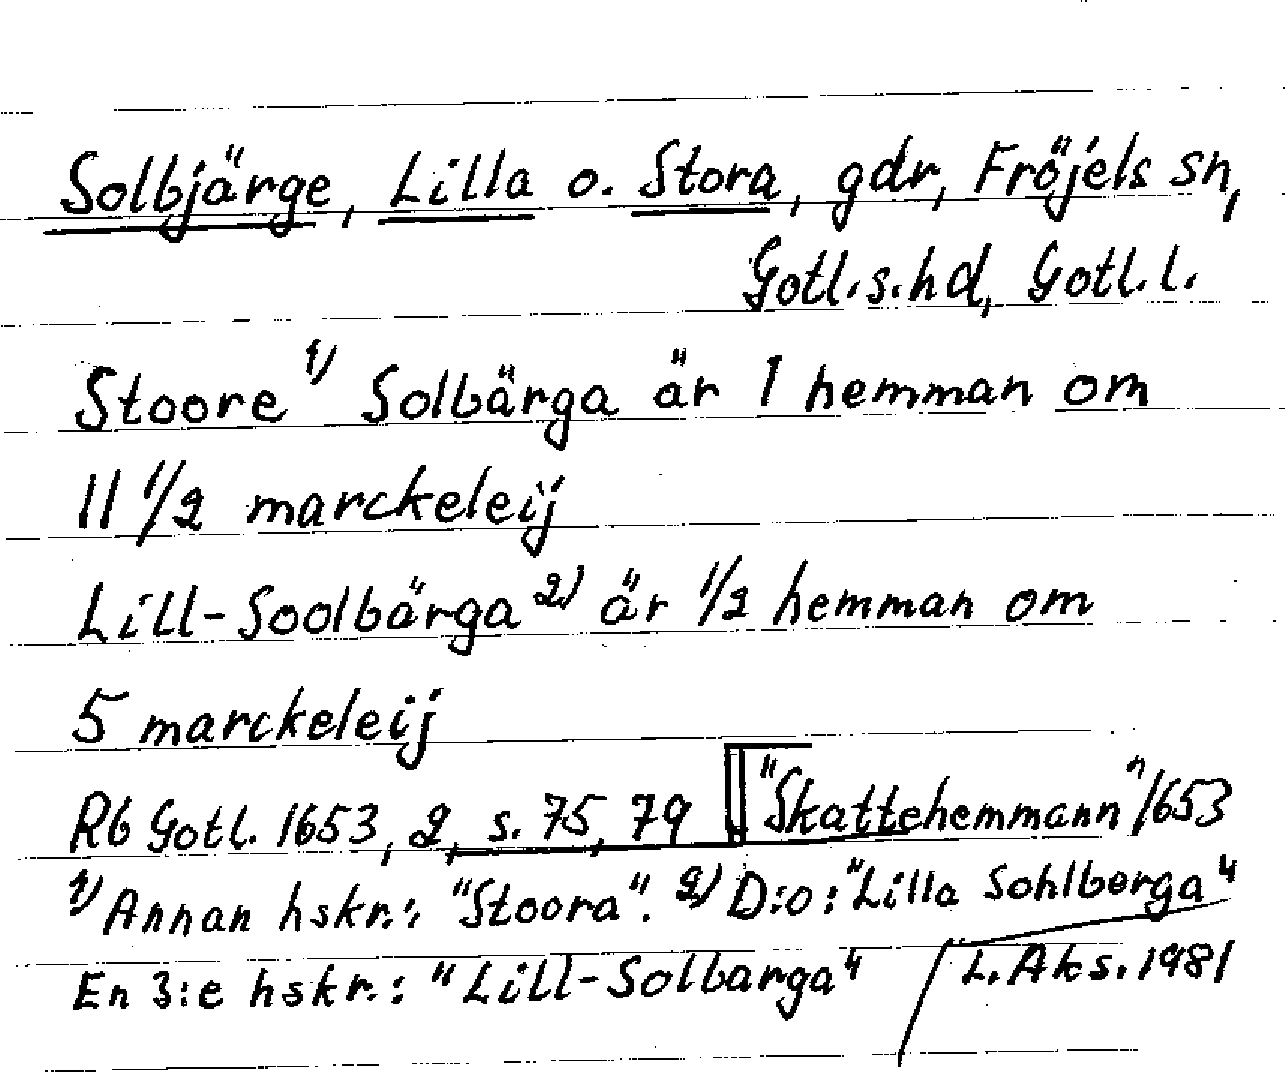 Solbjärge, Lilla o. Stora, gdr, Fröjels sn,
Gotl.s.hd, Gotl.l.
Stoore 1) Solbärga är 1 hemman om
11 1/2 marckeleij
Lill-Soolbärga 2) är 1/2 hemman om
5 marckeleij
Rb Gotl. 1653, 2, s. 75, 79 "Skattehemmann" 1653
1) Annan hskr.: "Stoora". 2) D:o: "Lilla Sohlberga"
En 3:e hskr.: "Lill-Solbarga" L. Aks. 1981